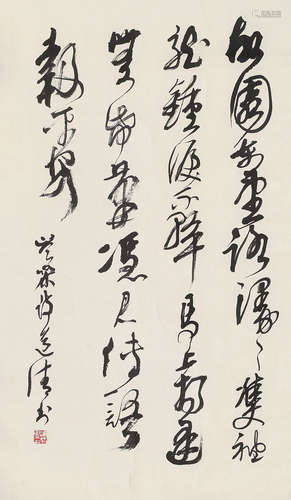 故園東望路漫々雙袖
龍鍾淚不乾馬上相逢
無紙筆憑君傳語
報平安
岑參詩 清書